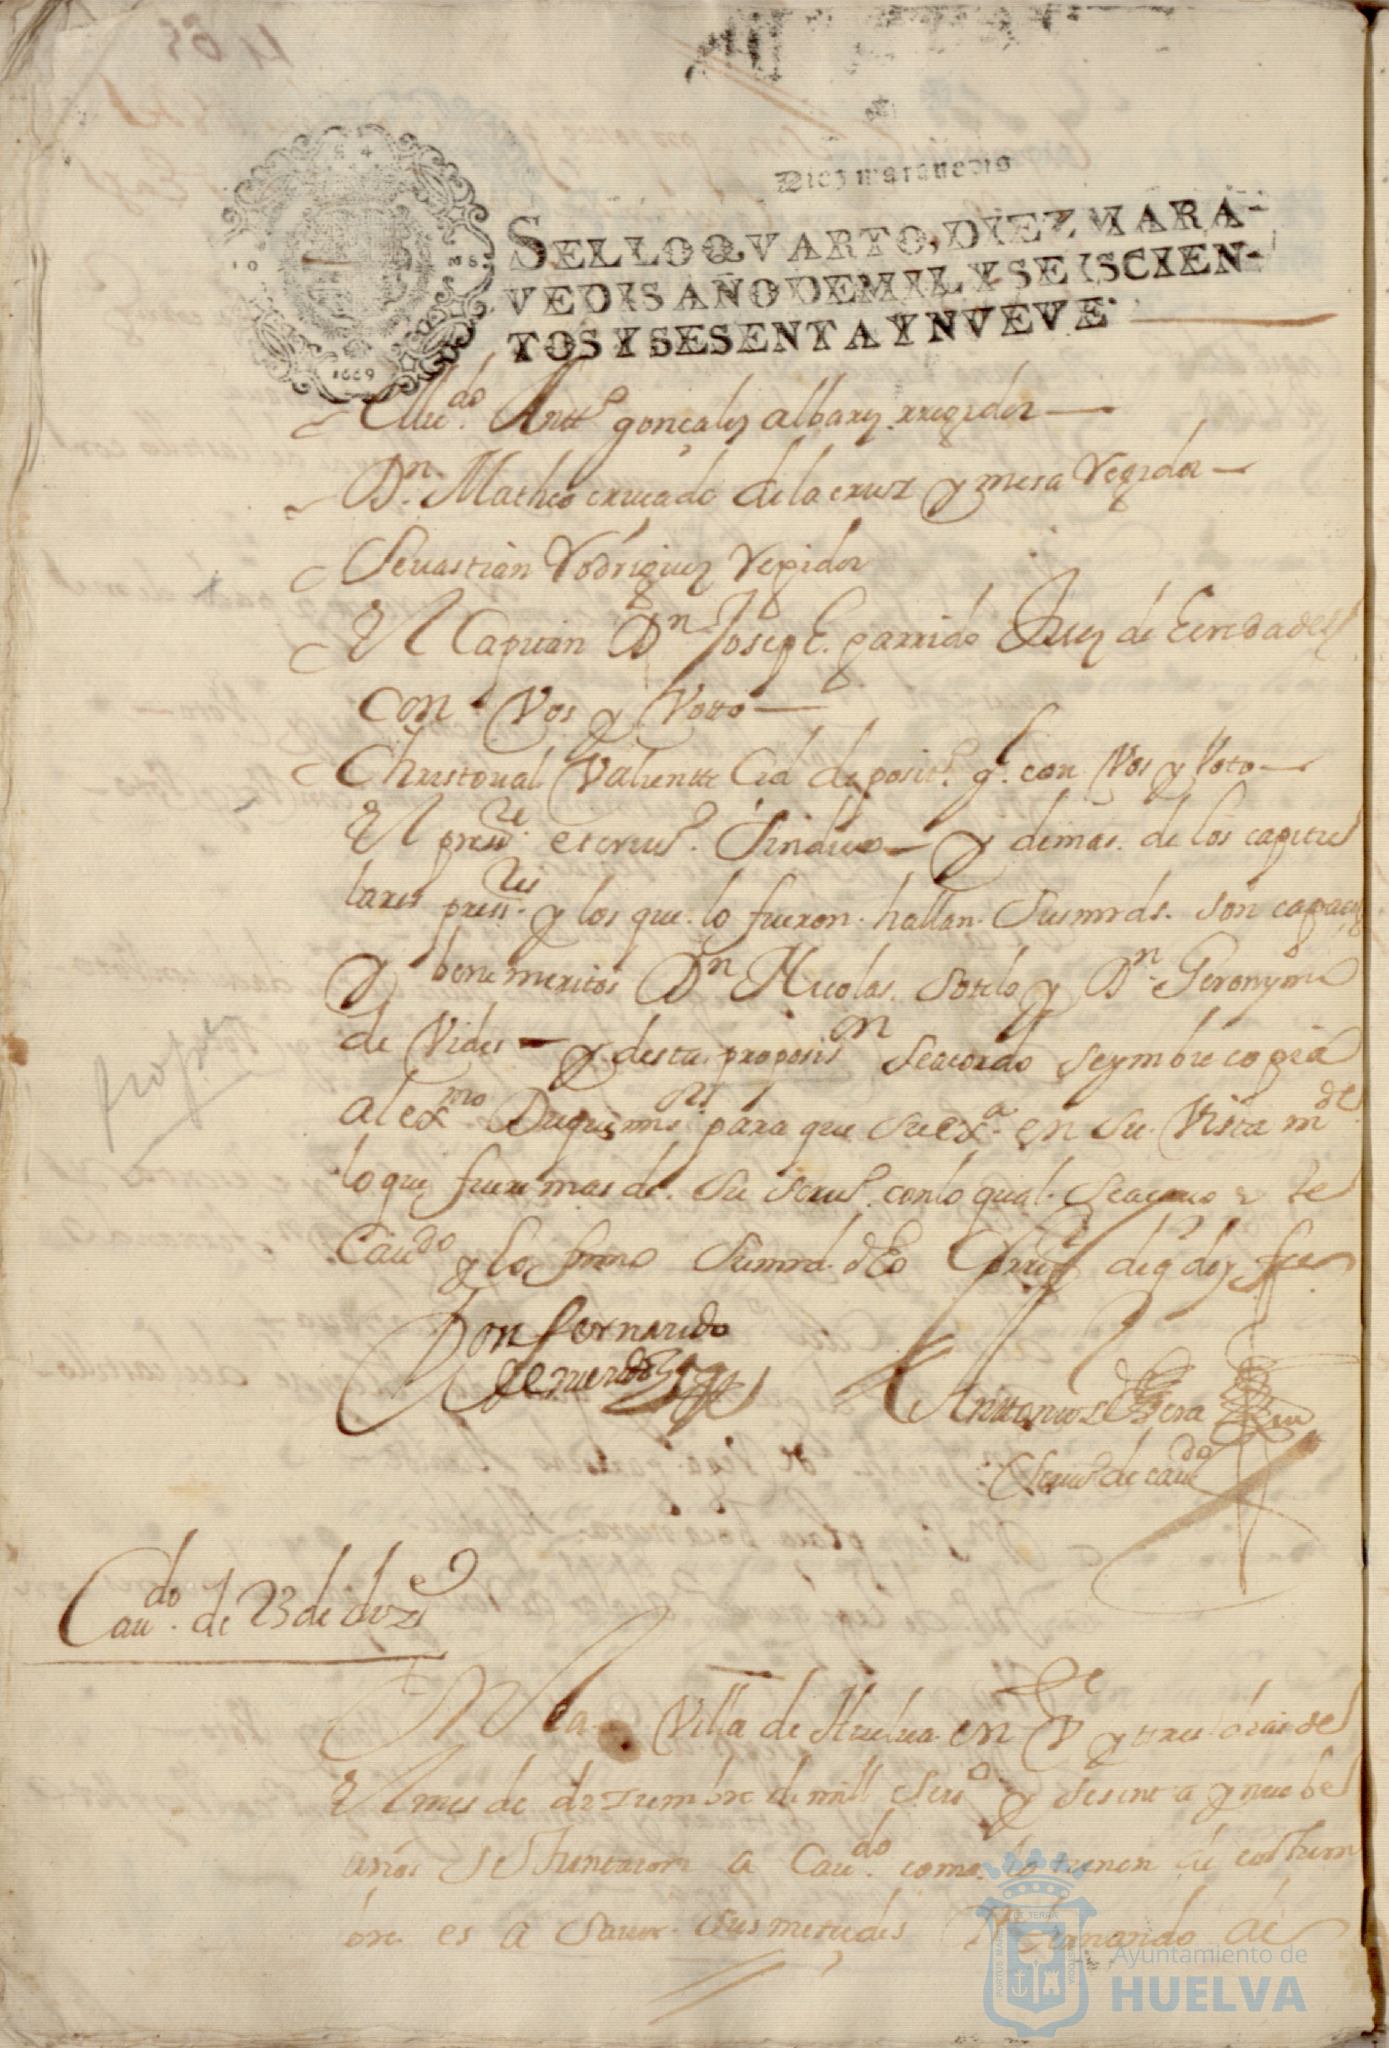 Diez maravedis
SELLO QVARTO, DIEZ MARA-
VEDIS AÑO DE MIL Y SEISCIEN-
TOS Y SESENTA Y NVEVE
1669
Antt.º gonçales albarez rregidor
Dn. Matheo de la cruz y mesa Regidor
Sevastian Rodriguez Regidor
El Capitan Dn. Josepe garrido Juez de Eeredades
con Vos y Votto
Christoual Valientte Cid deposit.º g.l con Vos y Voto
El press.te escriu.º Sindico y demas de los capitu
lares press.tes y los que lo fueron hallan Susmrds. son capaces
y bene meritos Dn Nicolas Sotelo y Dn Geronymo
de Vides y desta proposision se acordo se ymbie copia
al ex.mo Duque mi s.r para que su ex.a en su Vista m.de
lo que fuere mas de su seru.º con lo qual se acavo este
Cau.do y lo firmo Sumrd. dEo Corre.r de q doy fee
Don fernando
Anttonio de Vera
Scriu.º de cau.do
Cau.do de 23 de diz.e
propios
En la Villa de Huelua en V.te y tres dias de
El mes de diziembre de mill seis.os y sesenta y nuebe
años se Juntaron a Cau.do como lo tienen de costum
bre es a Sauer Sus mercedes Dn fernando de
PORTUS MARIS ET TERRAE CUSTODIA
Ayuntamiento de
HUELVA